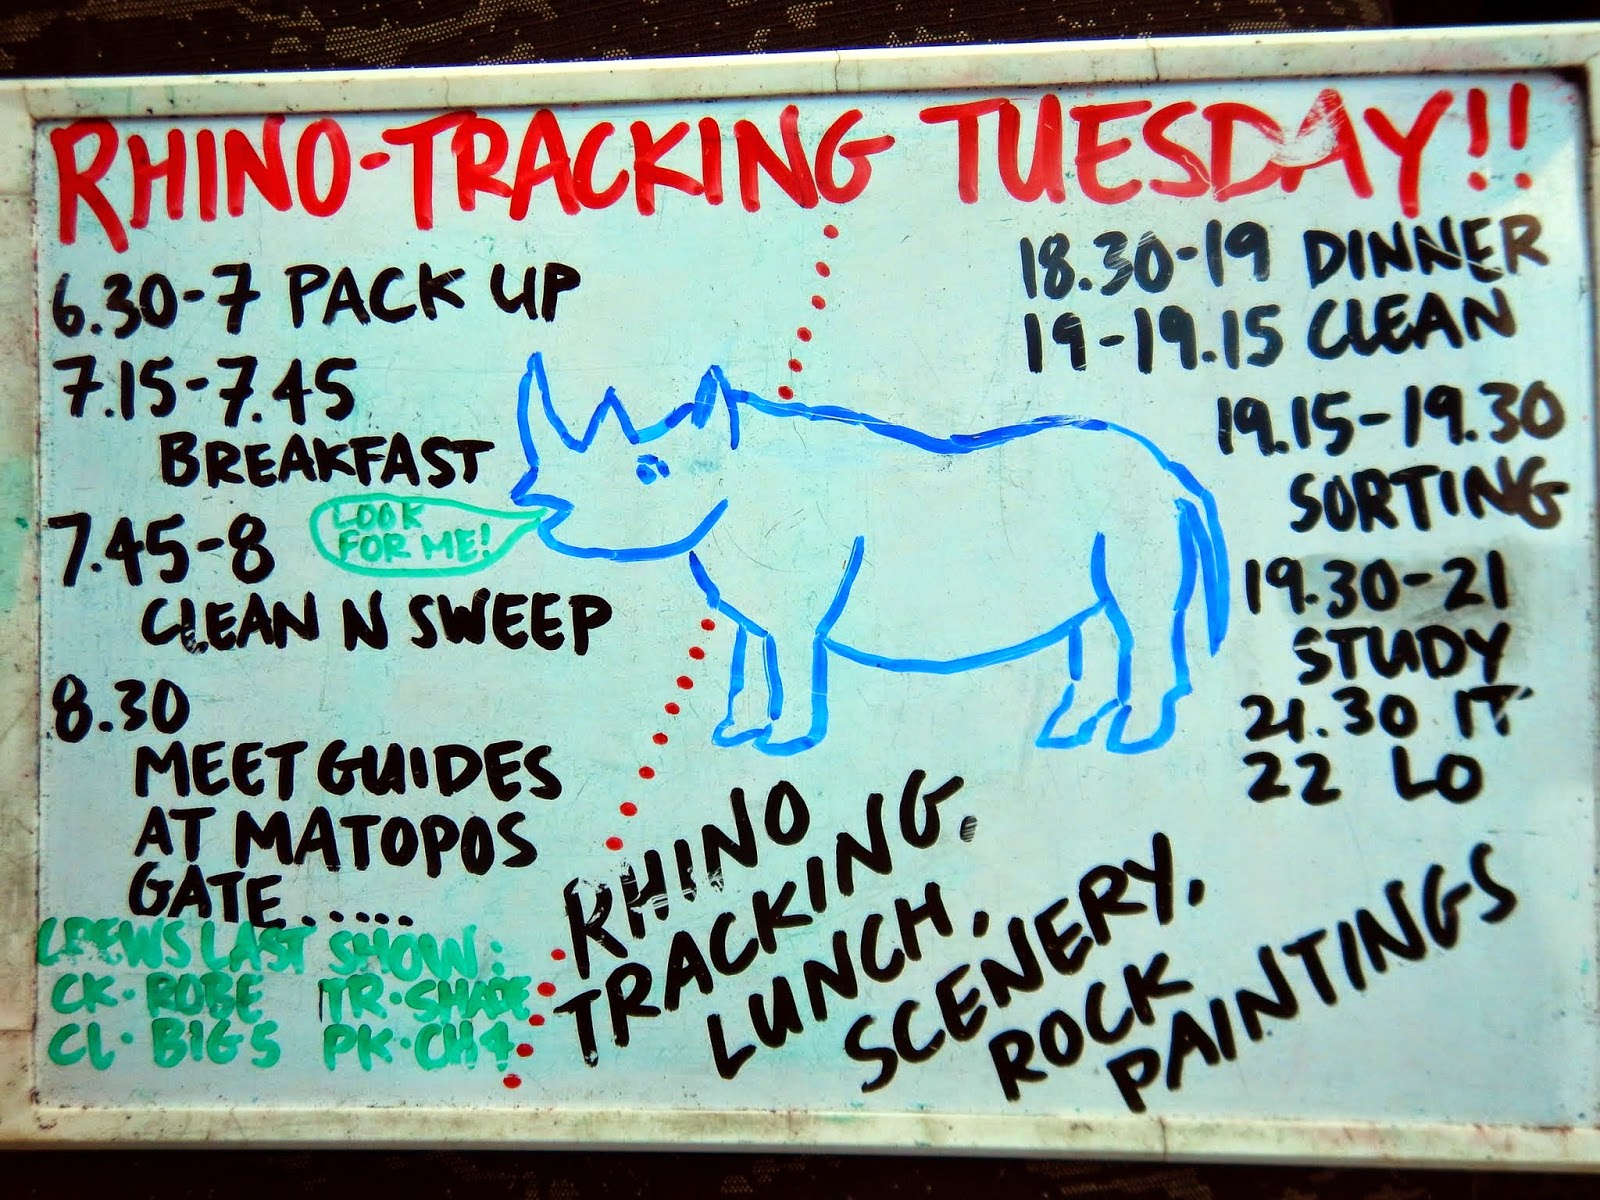 RHINO-TRACKING TUESDAY!!
6.30-7 PACK UP
7.15-7.45
BREAKFAST
7.45-8
CLEAN N SWEEP
8.30
MEET GUIDES
AT MATOPOS
GATE.....
CREWS LAST SHOW:
CK· ROBE TR·SHADE
CL· BIG 5 PK·CH4
LOOK
FOR ME!
RHINO
TRACKING.
LUNCH.
SCENERY.
ROCK
PAINTINGS
18.30-19 DINNER
19-19.15 CLEAN
19.15-19.30
SORTING
19.30-21
STUDY
21.30 IT
22 LO